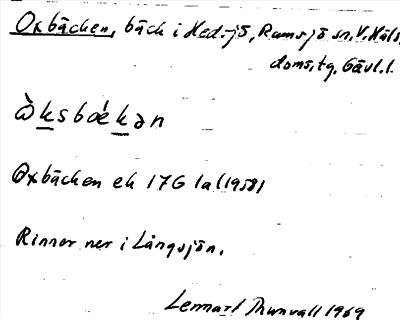 Oxbäcken, bäck i Hedsjö, Ramsjö sn. V. Häls.
doms. tg. Gävl. l.
ὰksbǽkən
Oxbäcken ek 17G 1a (1958)
Rinner ner i Långsjön.
Lennart Thunvall 1969